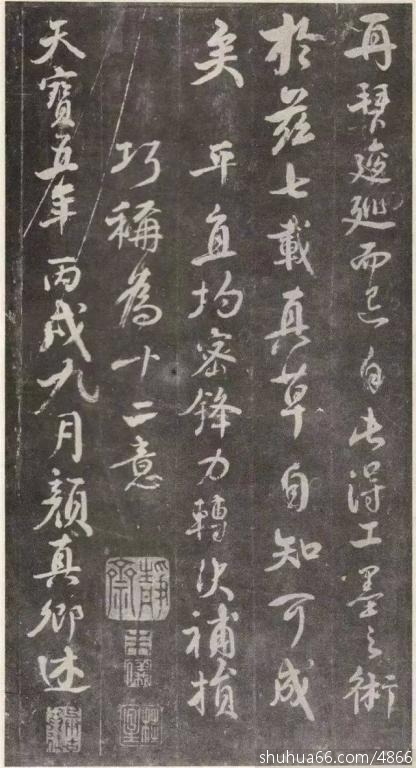 再拜逡巡而已自此得工墨之術
於茲七載真草自知可成
矣 平直均密鋒力轉決補損
巧稱為十二意
天寶五年丙戌九月顏真卿述
靜齋
shuhua66.com/4866